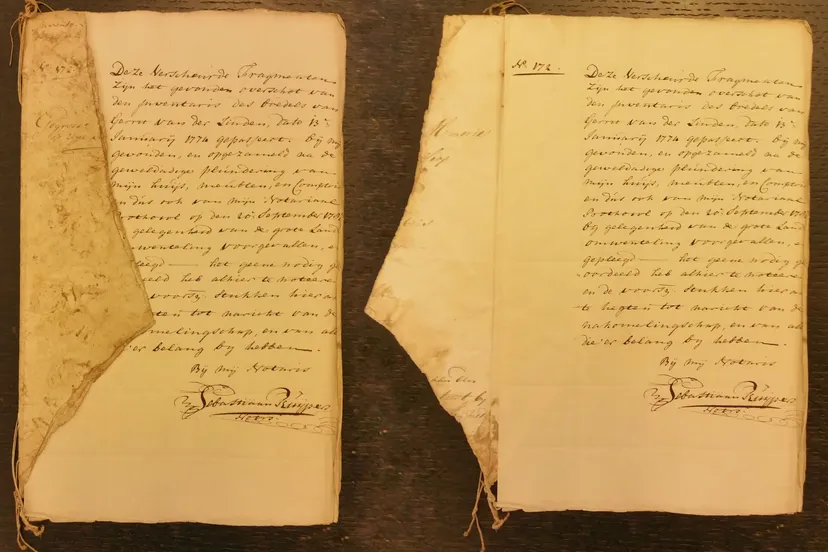 No 172.
Deze Verscheurde Fragmenten
Zijn het gevonden overschot van
den Inventaris des boedels van
Gerrit van der Linden, dato 13e
Januarij 1774 gepasseert. bij mij
gevonden, en opgezameld na de
geweldadige plundering van
mijn huijs, meublen, en Comptoir
en dus ook van mijn Notariaal
Prothocol op den 20: September 1787
gelegenheid van de grote Land
omwenteling voorgevallen, e
pleegd — het geene nodig g
oordeeld heb alhier te notere
voorsz. Stukken hier a
ten tot naricht van de
omelingschap, en van all
die 'er belang bij hebben.
Bij mij Notaris
Sebastiaan Kuijper
Notrs
No. 172.
Deze Verscheurde Fragmenten
Zijn het gevonden overschot van
den Inventaris des boedels van
Gerrit van der Linden, dato 13e
Januarij 1774 gepasseert. bij mij
gevonden, en opgezameld na de
geweldadige plundering van
mijn huijs, meublen, en Comptoir
en dus ook van mijn Notariaal
Prothocol op den 20: September 1787
bij gelegenheid van de grote Land
omwenteling voorgevallen, e
gepleegd — het geene nodig g
oordeeld heb alhier te notere
en de voorsz. Stukken hier a
te hegten tot naricht van de
nakomelingschap, en van all
die 'er belang bij hebben.
Bij mij Notaris
Sebastiaan Kuijper
Notrs